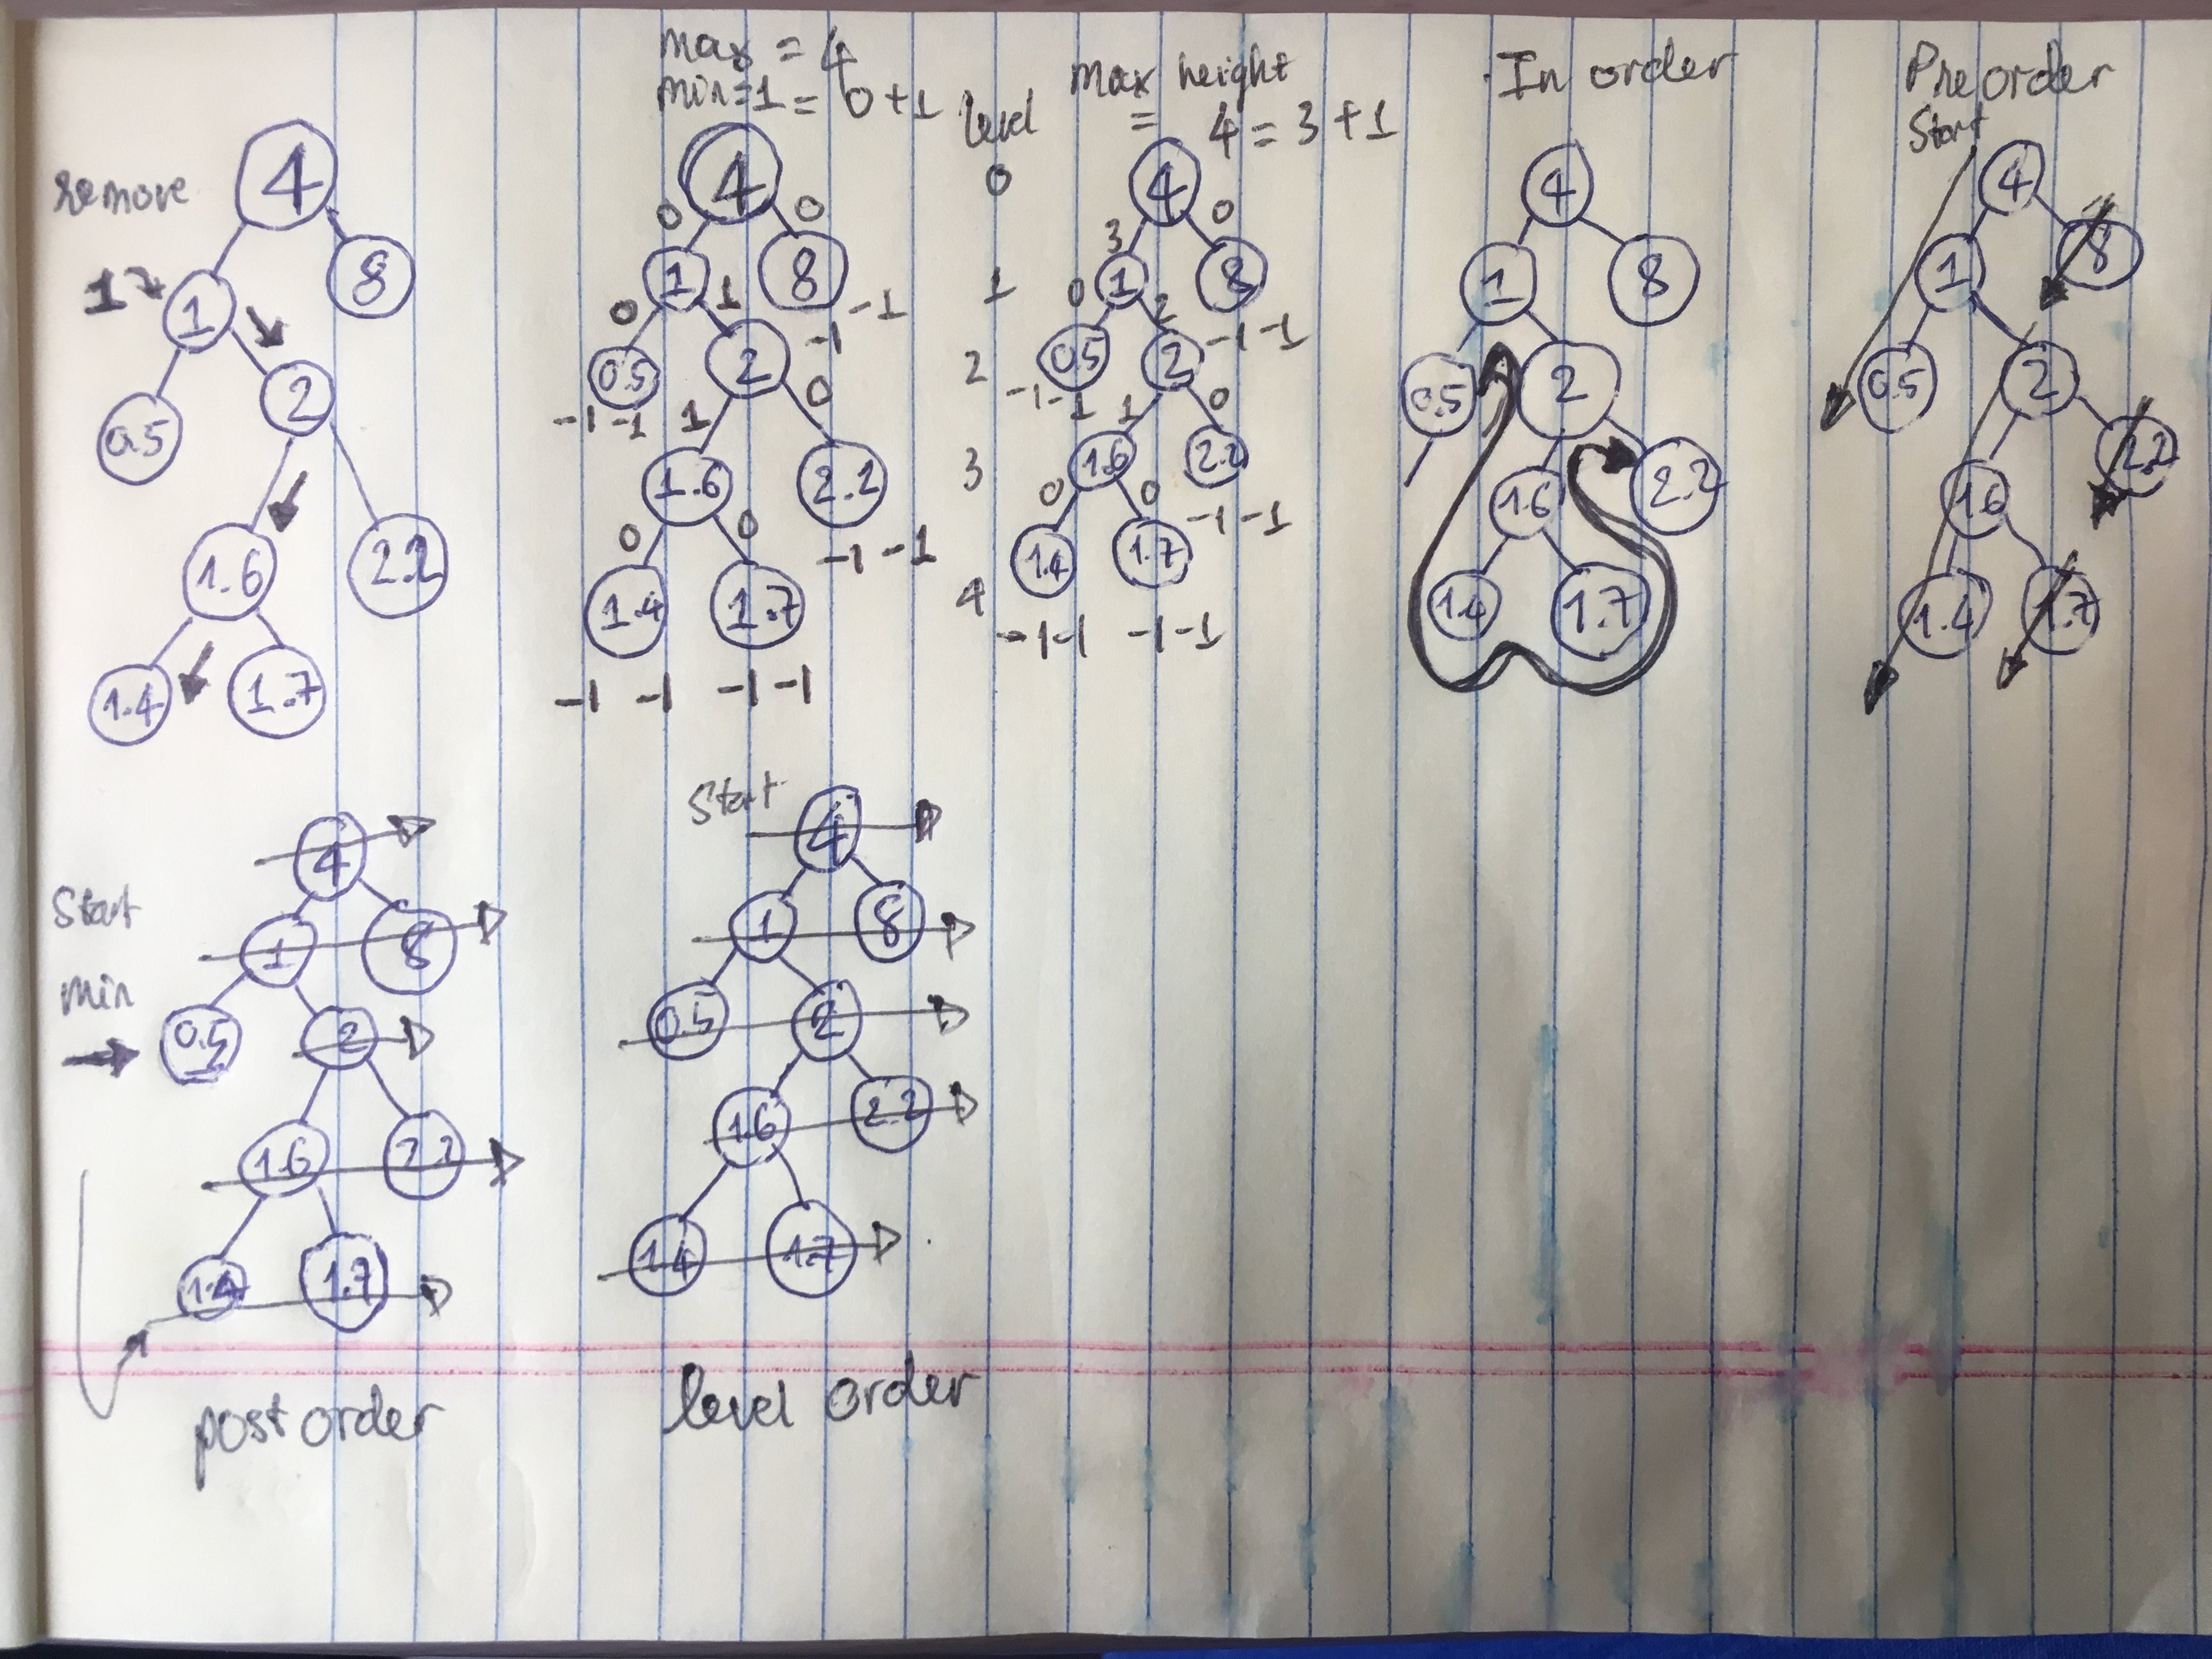 remove
4
1 1 8
0.5 2
1.6 2.2
1.4 1.7
max = 4
min=1 = 0+1
4
0 0
1 8
0 1 -1 -1
0.5 2
-1 -1 1 0
1.6 2.2
0 0 -1 -1
1.4 1.7
-1 -1 -1 -1
level
0
1
2
3
4
max height
= 4 = 3 + 1
4
3 0
1 8
0 2 -1 -1
0.5 2
-1 -1 1 0
1.6 2.2
0 0 -1 -1
1.4 1.7
-1 -1 -1 -1
In order
4
1 8
0.5 2
1.6 2.2
1.4 1.7
Preorder
Start
4
1 8
0.5 2
1.6 2.2
1.4 1.7
Start
min
4
1 8
0.5 2
1.6 2.2
1.4 1.7
post order
Start
4
1 8
0.5 2
1.6 2.2
1.4 1.7
level order